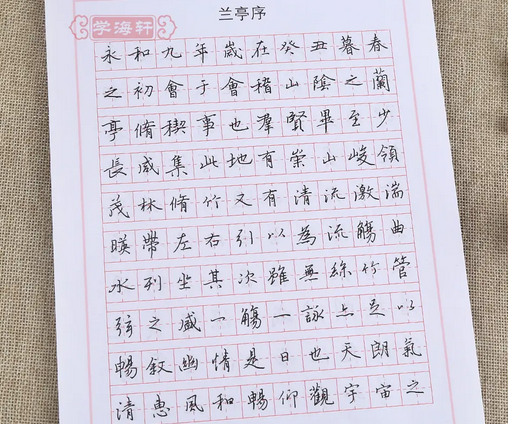 兰亭序
学海轩
永和九年歲在癸丑暮春
之初會于會稽山陰之蘭
亭脩稧事也羣賢畢至少
長咸集此地有崇山峻領
茂林脩竹又有清流激湍
暎帶左右引以為流觴曲
水列坐其次雖無絲竹管
弦之盛一觴一詠亦足以
暢叙幽情是日也天朗氣
清惠風和暢仰觀宇宙之